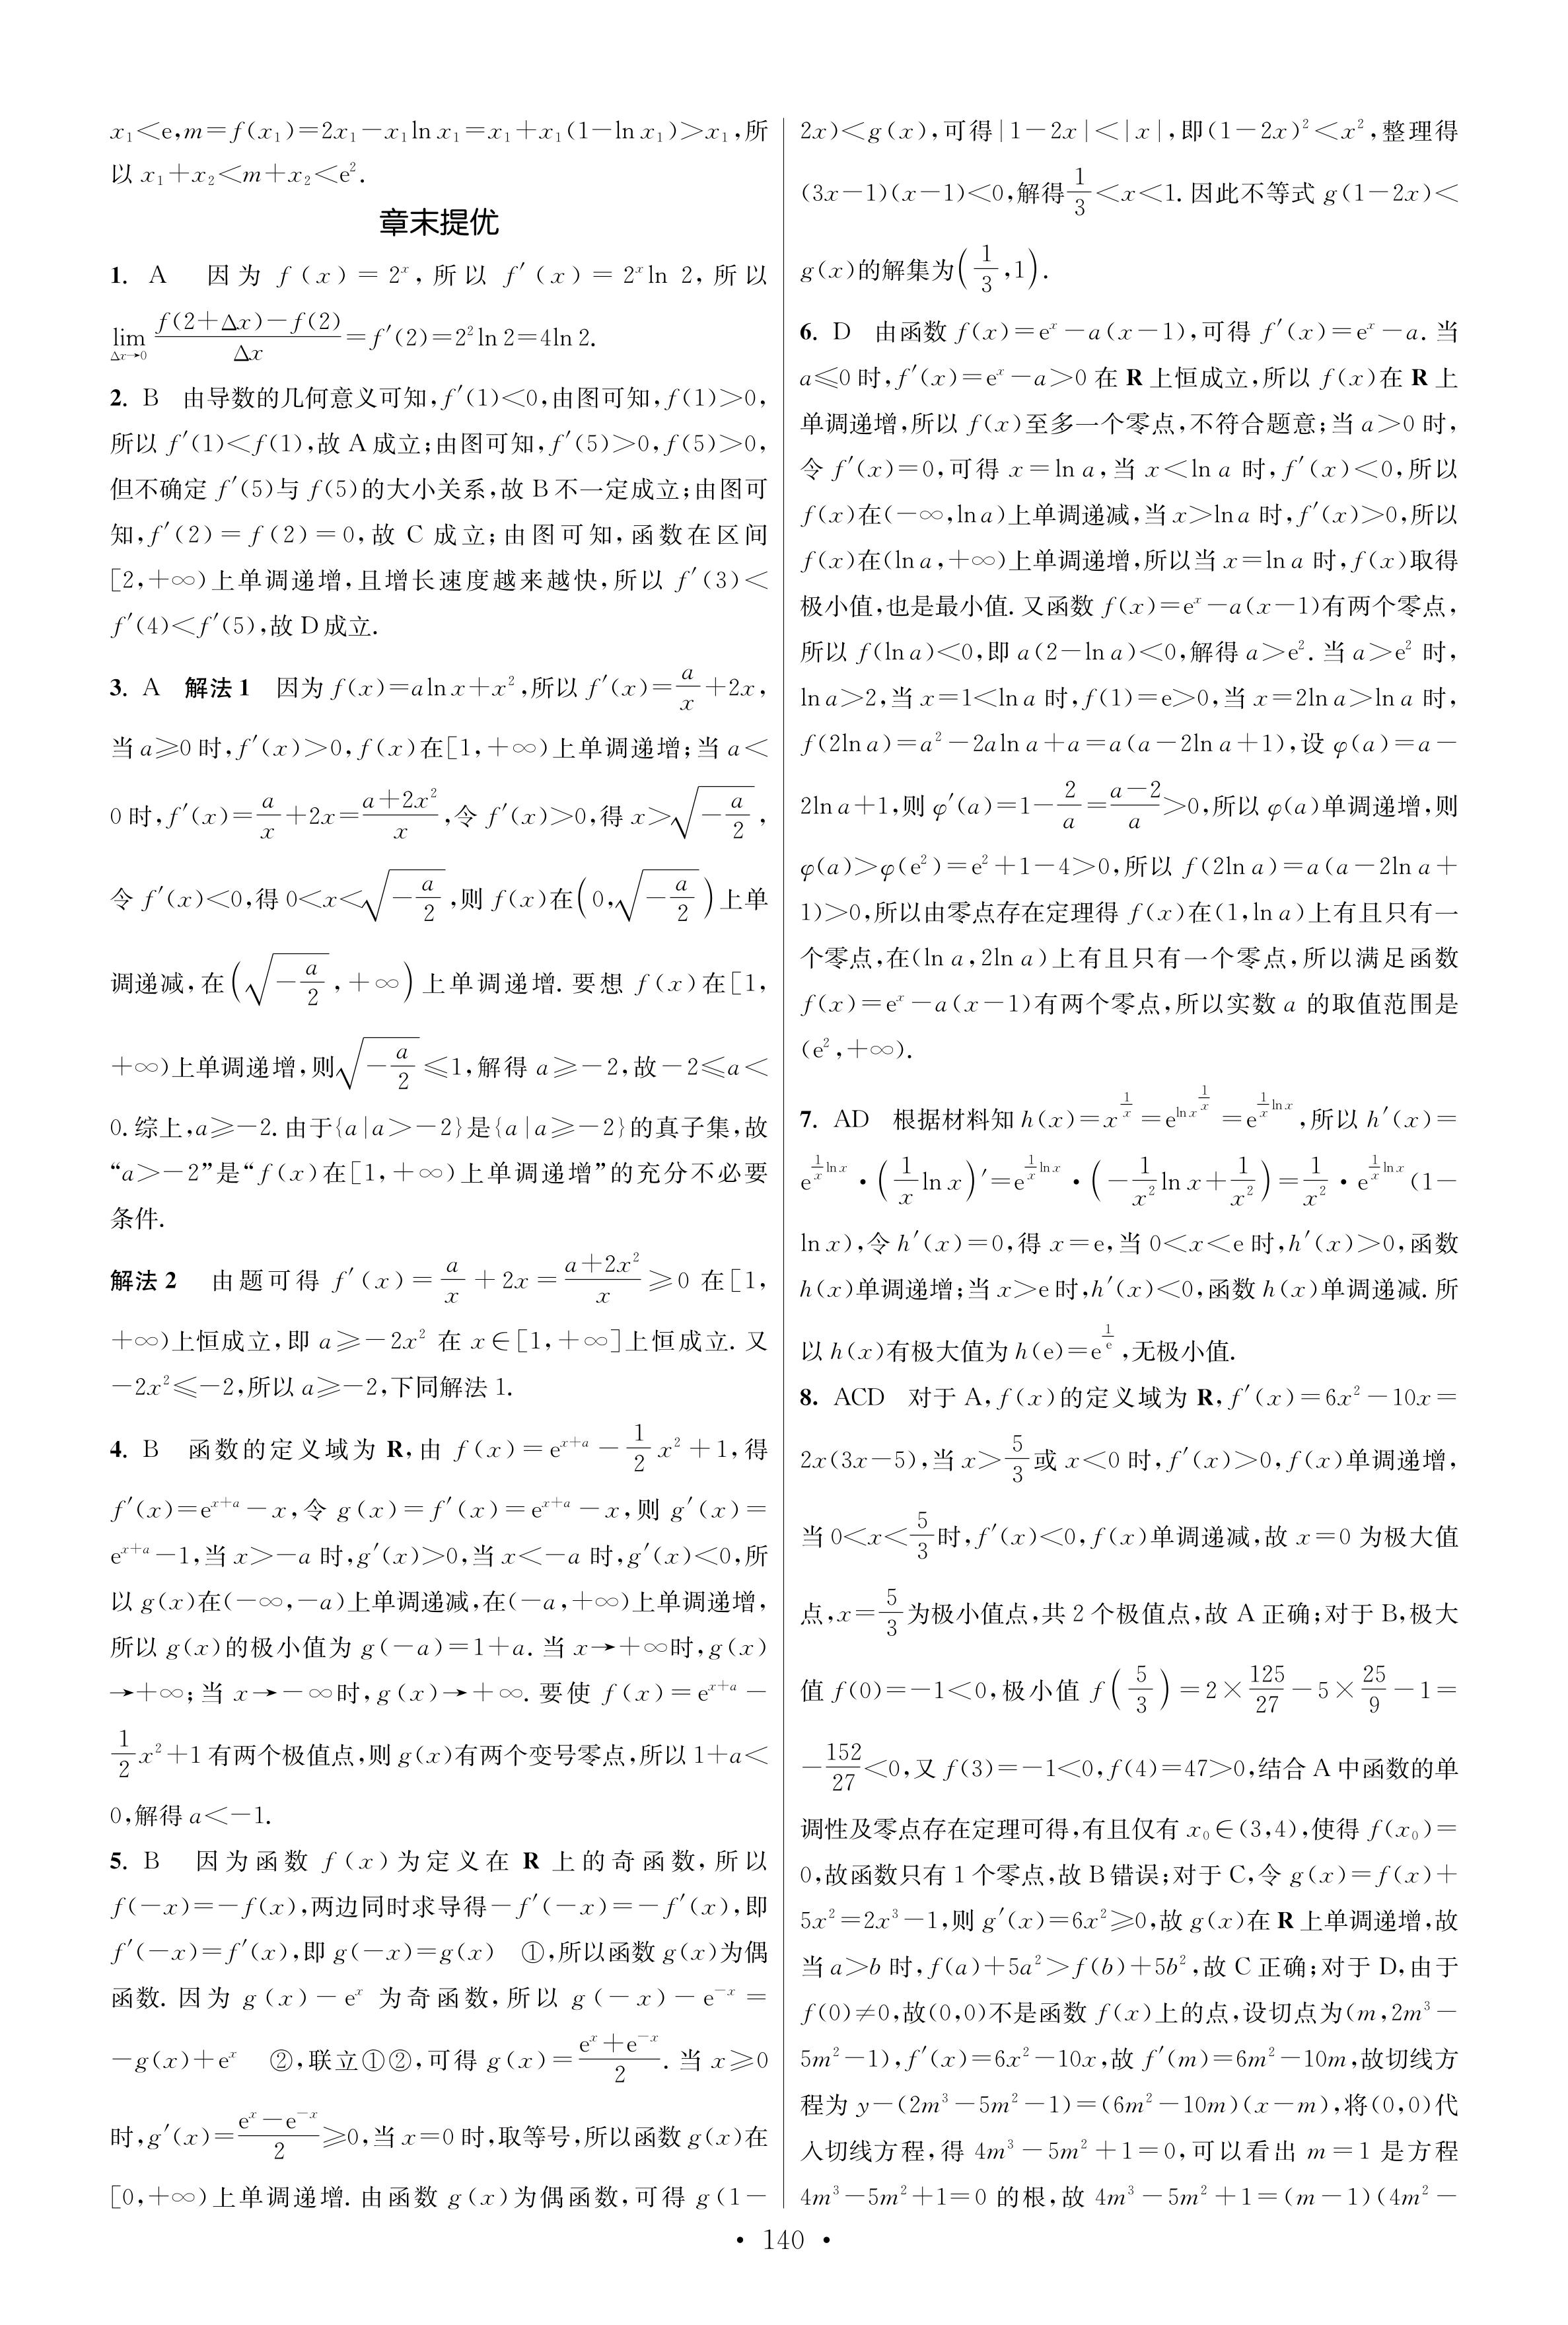 x₁<e,m=f(x₁)=2x₁-x₁ln x₁=x₁+x₁(1-ln x₁)>x₁,所
以 x₁+x₂<m+x₂<e².
章末提优
1. A 因为 f(x)=2ˣ,所以 f′(x)=2ˣln 2,所以
lim_{Δx→0} \frac{f(2+Δx)-f(2)}{Δx}=f′(2)=2²ln 2=4ln 2.
2. B 由导数的几何意义可知,f′(1)<0,由图可知,f(1)>0,
所以 f′(1)<f(1),故 A 成立;由图可知,f′(5)>0,f(5)>0,
但不确定 f′(5)与 f(5)的大小关系,故 B 不一定成立;由图可
知,f′(2)=f(2)=0,故 C 成立;由图可知,函数在区间
[2,+∞)上单调递增,且增长速度越来越快,所以 f′(3)<
f′(4)<f′(5),故 D 成立.
3. A 解法 1 因为 f(x)=aln x+x²,所以 f′(x)=\frac{a}{x}+2x,
当 a≥0 时,f′(x)>0,f(x)在[1,+∞)上单调递增;当 a<
0 时,f′(x)=\frac{a}{x}+2x=\frac{a+2x²}{x},令 f′(x)>0,得 x>\sqrt{-\frac{a}{2}},
令 f′(x)<0,得 0<x<\sqrt{-\frac{a}{2}},则 f(x)在(0,\sqrt{-\frac{a}{2}})上单
调递减,在(\sqrt{-\frac{a}{2}},+∞)上单调递增. 要想 f(x)在[1,
+∞)上单调递增,则\sqrt{-\frac{a}{2}}≤1,解得 a≥-2,故-2≤a<
0. 综上,a≥-2. 由于{a|a>-2}是{a|a≥-2}的真子集,故
“a>-2”是“f(x)在[1,+∞)上单调递增”的充分不必要
条件.
解法 2 由题可得 f′(x)=\frac{a}{x}+2x=\frac{a+2x²}{x}≥0 在[1,
+∞)上恒成立,即 a≥-2x² 在 x∈[1,+∞]上恒成立. 又
-2x²≤-2,所以 a≥-2,下同解法 1.
4. B 函数的定义域为 R,由 f(x)=e^{x+a}-\frac{1}{2}x²+1,得
f′(x)=e^{x+a}-x,令 g(x)=f′(x)=e^{x+a}-x,则 g′(x)=
e^{x+a}-1,当 x>-a 时,g′(x)>0,当 x<-a 时,g′(x)<0,所
以 g(x)在(-∞,-a)上单调递减,在(-a,+∞)上单调递增,
所以 g(x)的极小值为 g(-a)=1+a. 当 x→+∞时,g(x)
→+∞;当 x→-∞时,g(x)→+∞. 要使 f(x)=e^{x+a}-
\frac{1}{2}x²+1 有两个极值点,则 g(x)有两个变号零点,所以 1+a<
0,解得 a<-1.
5. B 因为函数 f(x)为定义在 R 上的奇函数,所以
f(-x)=-f(x),两边同时求导得-f′(-x)=-f′(x),即
f′(-x)=f′(x),即 g(-x)=g(x) ①,所以函数 g(x)为偶
函数. 因为 g(x)-eˣ 为奇函数,所以 g(-x)-e^{-x}=
-g(x)+eˣ ②,联立①②,可得 g(x)=\frac{eˣ+e^{-x}}{2}. 当 x≥0
时,g′(x)=\frac{eˣ-e^{-x}}{2}≥0,当 x=0 时,取等号,所以函数 g(x)在
[0,+∞)上单调递增. 由函数 g(x)为偶函数,可得 g(1-
2x)<g(x),可得|1-2x|<|x|,即(1-2x)²<x²,整理得
(3x-1)(x-1)<0,解得\frac{1}{3}<x<1. 因此不等式 g(1-2x)<
g(x)的解集为(\frac{1}{3},1).
6. D 由函数 f(x)=eˣ-a(x-1),可得 f′(x)=eˣ-a. 当
a≤0 时,f′(x)=eˣ-a>0 在 R 上恒成立,所以 f(x)在 R 上
单调递增,所以 f(x)至多一个零点,不符合题意;当 a>0 时,
令 f′(x)=0,可得 x=ln a,当 x<ln a 时,f′(x)<0,所以
f(x)在(-∞,ln a)上单调递减,当 x>ln a 时,f′(x)>0,所以
f(x)在(ln a,+∞)上单调递增,所以当 x=ln a 时,f(x)取得
极小值,也是最小值. 又函数 f(x)=eˣ-a(x-1)有两个零点,
所以 f(ln a)<0,即 a(2-ln a)<0,解得 a>e². 当 a>e² 时,
ln a>2,当 x=1<ln a 时,f(1)=e>0,当 x=2ln a>ln a 时,
f(2ln a)=a²-2aln a+a=a(a-2ln a+1),设 φ(a)=a-
2ln a+1,则 φ′(a)=1-\frac{2}{a}=\frac{a-2}{a}>0,所以 φ(a)单调递增,则
φ(a)>φ(e²)=e²+1-4>0,所以 f(2ln a)=a(a-2ln a+
1)>0,所以由零点存在定理得 f(x)在(1,ln a)上有且只有一
个零点,在(ln a,2ln a)上有且只有一个零点,所以满足函数
f(x)=eˣ-a(x-1)有两个零点,所以实数 a 的取值范围是
(e²,+∞).
7. AD 根据材料知 h(x)=x^{\frac{1}{x}}=e^{ln x^{\frac{1}{x}}}=e^{\frac{1}{x}ln x},所以 h′(x)=
e^{\frac{1}{x}ln x}·(\frac{1}{x}ln x)′=e^{\frac{1}{x}ln x}·(-\frac{1}{x²}ln x+\frac{1}{x²})=\frac{1}{x²}·e^{\frac{1}{x}ln x}(1-
ln x),令 h′(x)=0,得 x=e,当 0<x<e 时,h′(x)>0,函数
h(x)单调递增;当 x>e 时,h′(x)<0,函数 h(x)单调递减. 所
以 h(x)有极大值为 h(e)=e^{\frac{1}{e}},无极小值.
8. ACD 对于 A,f(x)的定义域为 R,f′(x)=6x²-10x=
2x(3x-5),当 x>\frac{5}{3}或 x<0 时,f′(x)>0,f(x)单调递增,
当 0<x<\frac{5}{3}时,f′(x)<0,f(x)单调递减,故 x=0 为极大值
点,x=\frac{5}{3}为极小值点,共 2 个极值点,故 A 正确;对于 B,极大
值 f(0)=-1<0,极小值 f(\frac{5}{3})=2×\frac{125}{27}-5×\frac{25}{9}-1=
-\frac{152}{27}<0,又 f(3)=-1<0,f(4)=47>0,结合 A 中函数的单
调性及零点存在定理可得,有且仅有 x₀∈(3,4),使得 f(x₀)=
0,故函数只有 1 个零点,故 B 错误;对于 C,令 g(x)=f(x)+
5x²=2x³-1,则 g′(x)=6x²≥0,故 g(x)在 R 上单调递增,故
当 a>b 时,f(a)+5a²>f(b)+5b²,故 C 正确;对于 D,由于
f(0)≠0,故(0,0)不是函数 f(x)上的点,设切点为(m,2m³-
5m²-1),f′(x)=6x²-10x,故 f′(m)=6m²-10m,故切线方
程为 y-(2m³-5m²-1)=(6m²-10m)(x-m),将(0,0)代
入切线方程,得 4m³-5m²+1=0,可以看出 m=1 是方程
4m³-5m²+1=0 的根,故 4m³-5m²+1=(m-1)(4m²-
· 140 ·